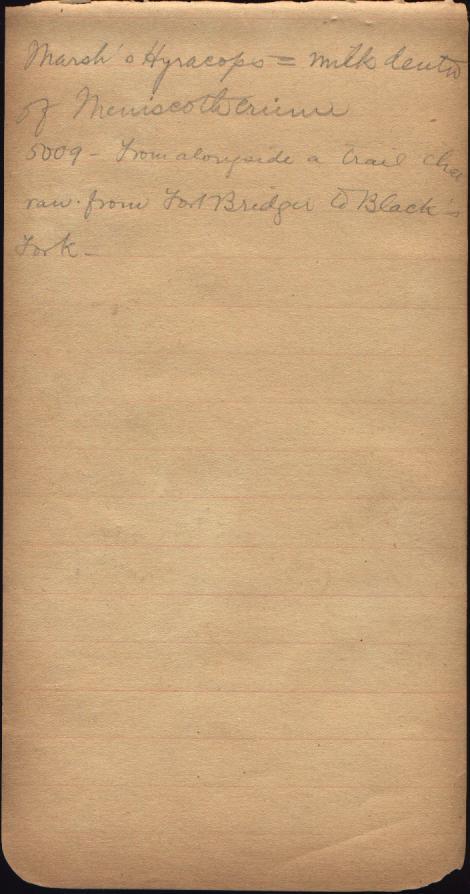 Marsh's Hyracops = milk denti
of Meniscotherium
5009 - From alongside a trail that
ran from Fort Bridger to Black's
Fork -